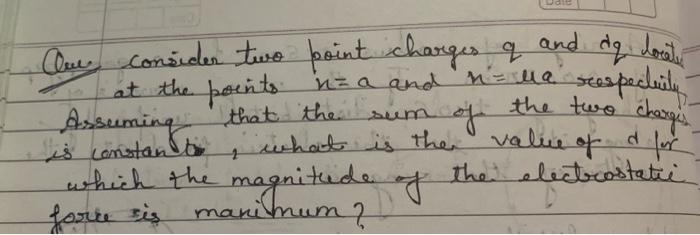 Date
Que, consider two point charges q and dq locate
at the points x = a and x = ua respectively,
Assuming that the sum of the two charges
is constant, what is the value of d for
which the magnitude of the electrostatic
force is maximum?